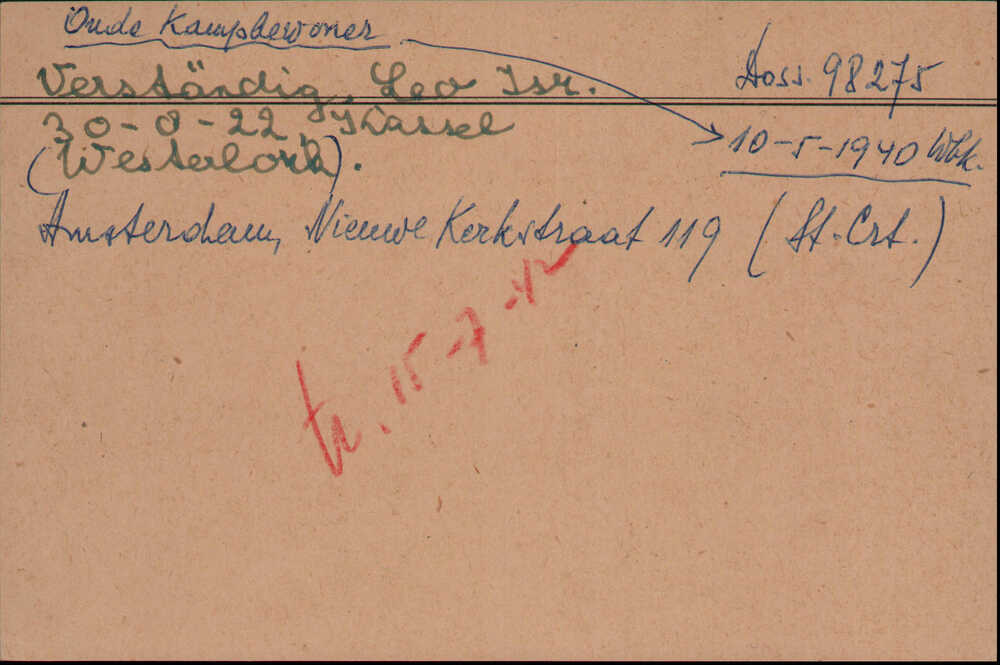 Oude Kampbewoner
Verständig, Leo Isr.
Doss. 98275
30-8-22 Kassel
10-5-1940 Wbk.
(Westerbork).
Amsterdam, Nieuwe Kerkstraat 119 (St. Crt.)
tr. 15-7-42